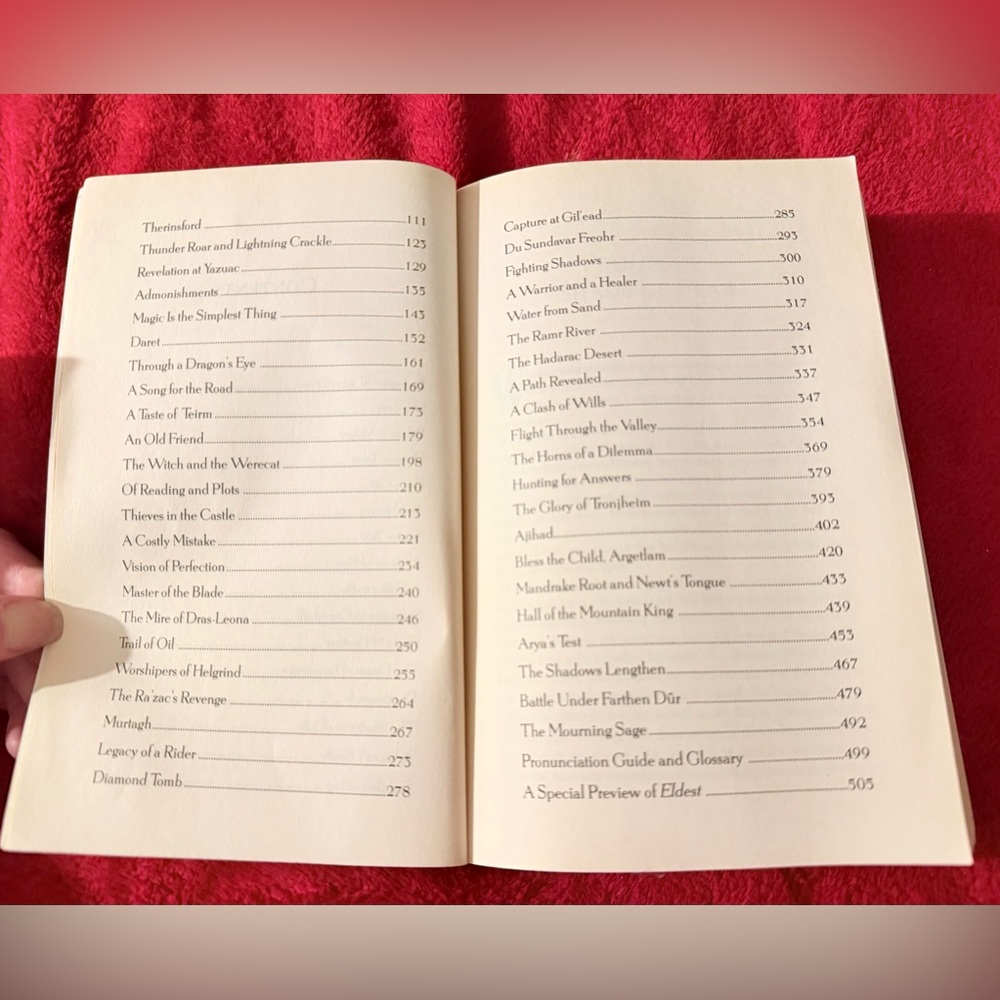 Therinsford 111
Thunder Roar and Lightning Crackle 123
Revelation at Yazuac 129
Admonishments 135
Magic Is the Simplest Thing 143
Daret 152
Through a Dragon's Eye 161
A Song for the Road 169
A Taste of Teirm 173
An Old Friend 179
The Witch and the Werecat 198
Of Reading and Plots 210
Thieves in the Castle 213
A Costly Mistake 221
Vision of Perfection 234
Master of the Blade 240
The Mire of Dras-Leona 246
Trail of Oil 250
Worshipers of Helgrind 255
The Ra'zac's Revenge 264
Murtagh 267
Legacy of a Rider 273
Diamond Tomb 278
Capture at Gil'ead 285
Du Sundavar Freohr 293
Fighting Shadows 300
A Warrior and a Healer 310
Water from Sand 317
The Ramr River 324
The Hadarac Desert 331
A Path Revealed 337
A Clash of Wills 347
Flight Through the Valley 354
The Horns of a Dilemma 369
Hunting for Answers 379
The Glory of Tronjheim 393
Ajihad 402
Bless the Child, Argetlam 420
Mandrake Root and Newt's Tongue 433
Hall of the Mountain King 439
Arya's Test 453
The Shadows Lengthen 467
Battle Under Farthen Dûr 479
The Mourning Sage 492
Pronunciation Guide and Glossary 499
A Special Preview of Eldest 505